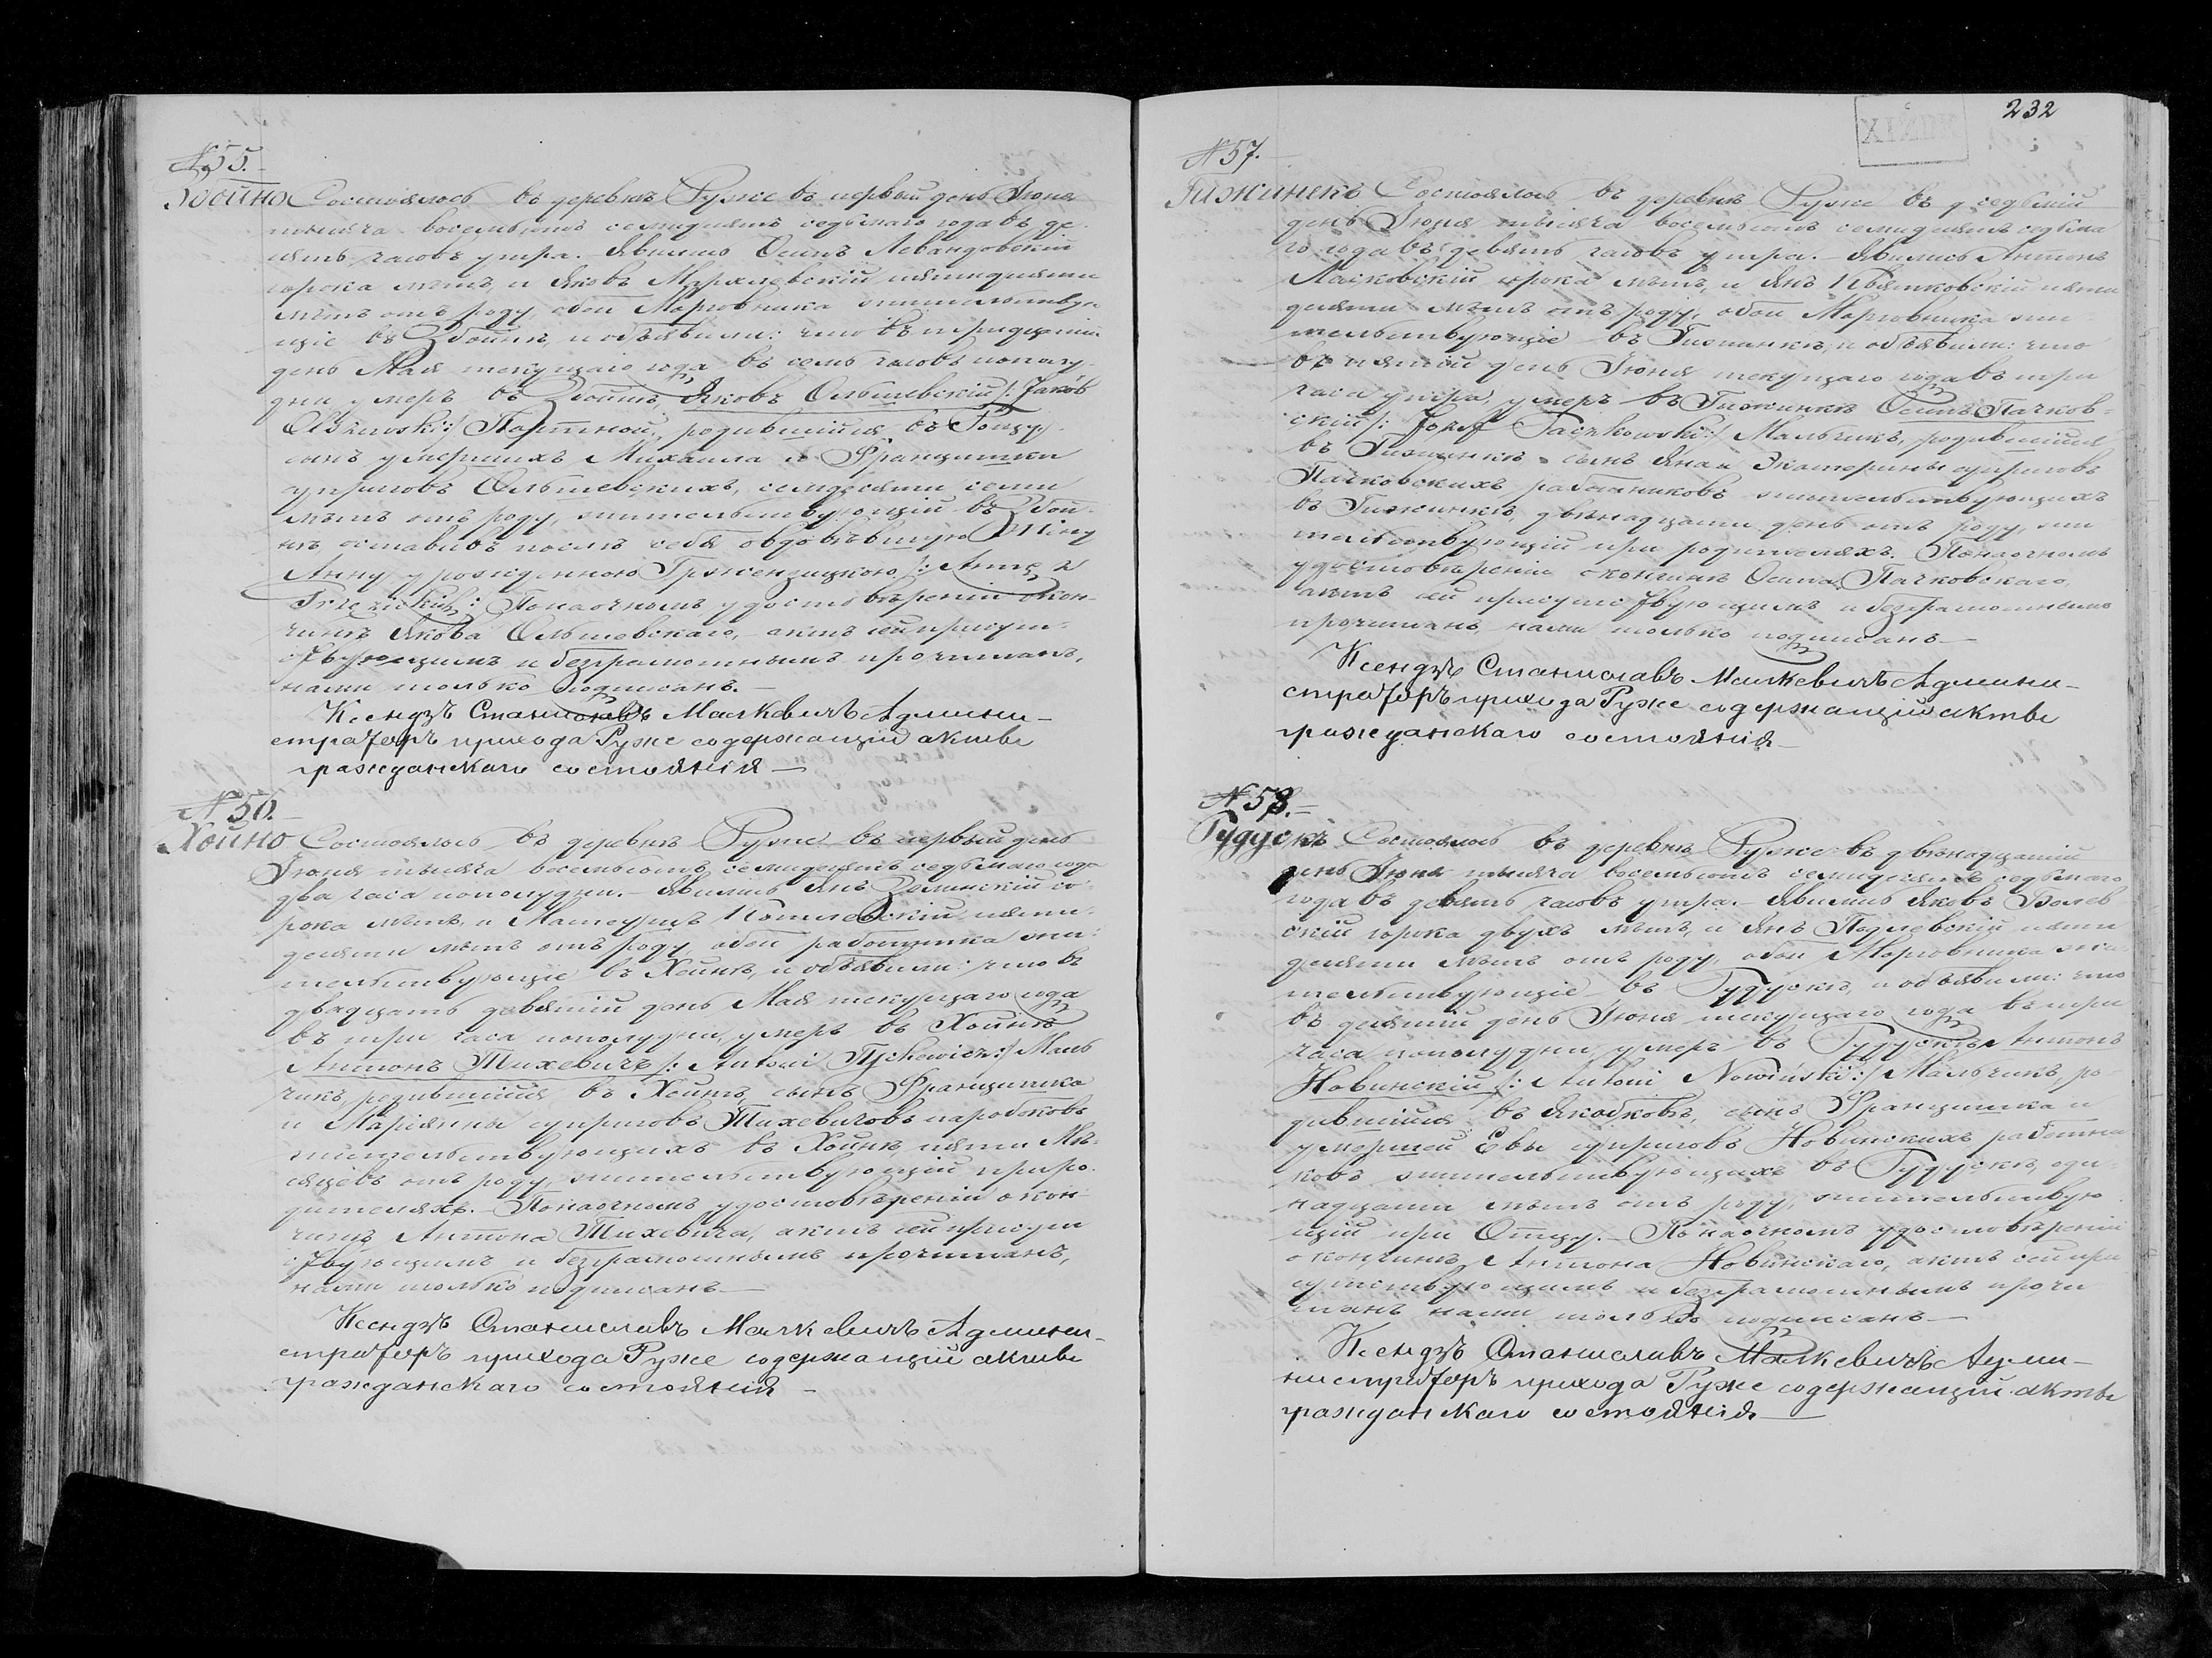 №55.
Збойно Состоялось въ деревнѣ Ружѣ въ первый день Іюня
тысяча восемьсотъ семидесятъ седьмаго года въ де-
сять часовъ утра. Явились Осипъ Левандовскій
сорока лѣтъ, и Яковъ Мархлевскій пятидесяти
лѣтъ отъ роду, обои Морговника жительствую
щіе въ Збойнѣ, и объявили: что въ тридцатый
день Мая текущаго года въ семь часовъ пополу-
дни умеръ въ Збойнѣ, Яковъ Ольшевскій /: Jakób
Olszewski :/ Портной, родившійся въ
сынъ умершихъ Михаила и Францишки
супруговъ Ольшевскихъ, семдесяти семи
лѣтъ отъ роду, жительствующій въ Збой-
нѣ, оставивъ послѣ себя овдовѣвшую Жену
Анну урожденною /: Annę z
: Понаочномъ удостовѣреніи окон-
чинѣ Якова Ольшевскаго, актъ сей присут-
ствующимъ и безграмотнымъ прочитанъ,
нами только подписанъ.—
Ксендзъ Станиславъ Малкевичъ Админи-
страторъ прихода Руже содержащій акты
гражданскаго состоянія —
№56.
Хойно Состоялось въ деревнѣ Руже въ первый день
Іюня тысяча восемьсотъ семидесятъ седьмаго года
два часа пополудни.— Явились Янъ Зелинскій со-
рока лѣтъ, и Матеушъ пяти-
десяти лѣтъ отъ роду, обои работника жи-
тельствующіе въ Хойнѣ, и объявили: что въ
двадцатъ девятый день Мая текущаго года
въ три часа пополудни, умеръ въ Хойнѣ
Антонъ Тихевичъ /: Antoni Tychewicz :/ Маль
чикъ, родившійся въ Хойнѣ, сынъ Францишка
и Маріянны супруговъ Тихевичовъ паробковъ
жительствующихъ въ Хойнѣ, пяти Мѣ-
сяцевъ отъ роду, жительствующій при ро-
дителяхъ.— Понаочномъ удостовѣреніи окон-
чинѣ Антона Тихевича, актъ сей присут
ствующимъ и безграмотнымъ прочитанъ,
нами только подписанъ —
Ксендзъ Станиславъ Малкевичъ Админи-
страторъ прихода Руже содержащій акты
гражданскаго состоянія —
232
№57.
Гижинекъ Состоялось въ деревнѣ Руже въ седьмый
день Іюня тысяча восемьсотъ семидесятъ седьма
го года въ девять часовъ утра.— Явились Антонъ
сорока лѣтъ, и Янъ Квятковскій пяти
десяти лѣтъ отъ роду, обои Морговника жи
тельствующіе въ Гижинкѣ, и объявили: что
въ пятый день Іюня текущаго года въ три
часа утра, умеръ въ Гижинкѣ Осипъ Пачков-
скій /: Józef Paczkowski :/ Мальчикъ, родившійся
въ Гижинкѣ сынъ Яна и Екатерины супруговъ
Пачковскихъ работниковъ жительствующихъ
въ Гижинкѣ, двѣнадцати день отъ роду, жи
тельствующій при родителяхъ. Понаочномъ
удостовѣреніи окончинѣ Осипа Пачковскаго,
актъ сей присутствующимъ и безграмотнымъ
прочитанъ, нами только подписанъ —
Ксендзъ Станиславъ Малкевичъ Админи-
страторъ прихода Руже содержащій акты
гражданскаго состоянія —
№58.
Гудускъ Состоялось въ деревнѣ Руже въ двѣнадцатый
день Іюня тысяча восемьсотъ семидесятъ седьмаго
года въ девять часовъ утра.— Явились Яковъ
скій сорока двухъ лѣтъ, и Янъ пяти
десяти лѣтъ отъ роду, обои Морговника жи
тельствующіе въ Гудускѣ, и объявили: что
въ десятый день Іюня текущаго года въ три
часа пополудни, умеръ въ Гудускѣ Антонъ
Новинскій /: Antoni Nowiński :/ Мальчикъ, ро
дившійся въ Якобковѣ, сынъ Францишка и
умершей Евы супруговъ Новинскихъ работни
ковъ жительствующихъ въ Гудускѣ, оди-
надцати лѣтъ отъ роду, жительствую
щій при Отцу.— Понаочномъ удостовѣреніи
окончинѣ Антона Новинскаго, актъ сей при
сутствующимъ и безграмотнымъ прочи
танъ нами только подписанъ —
Ксендзъ Станиславъ Малкевичъ Адми-
нистраторъ прихода Руже содержащій акты
гражданскаго состоянія —